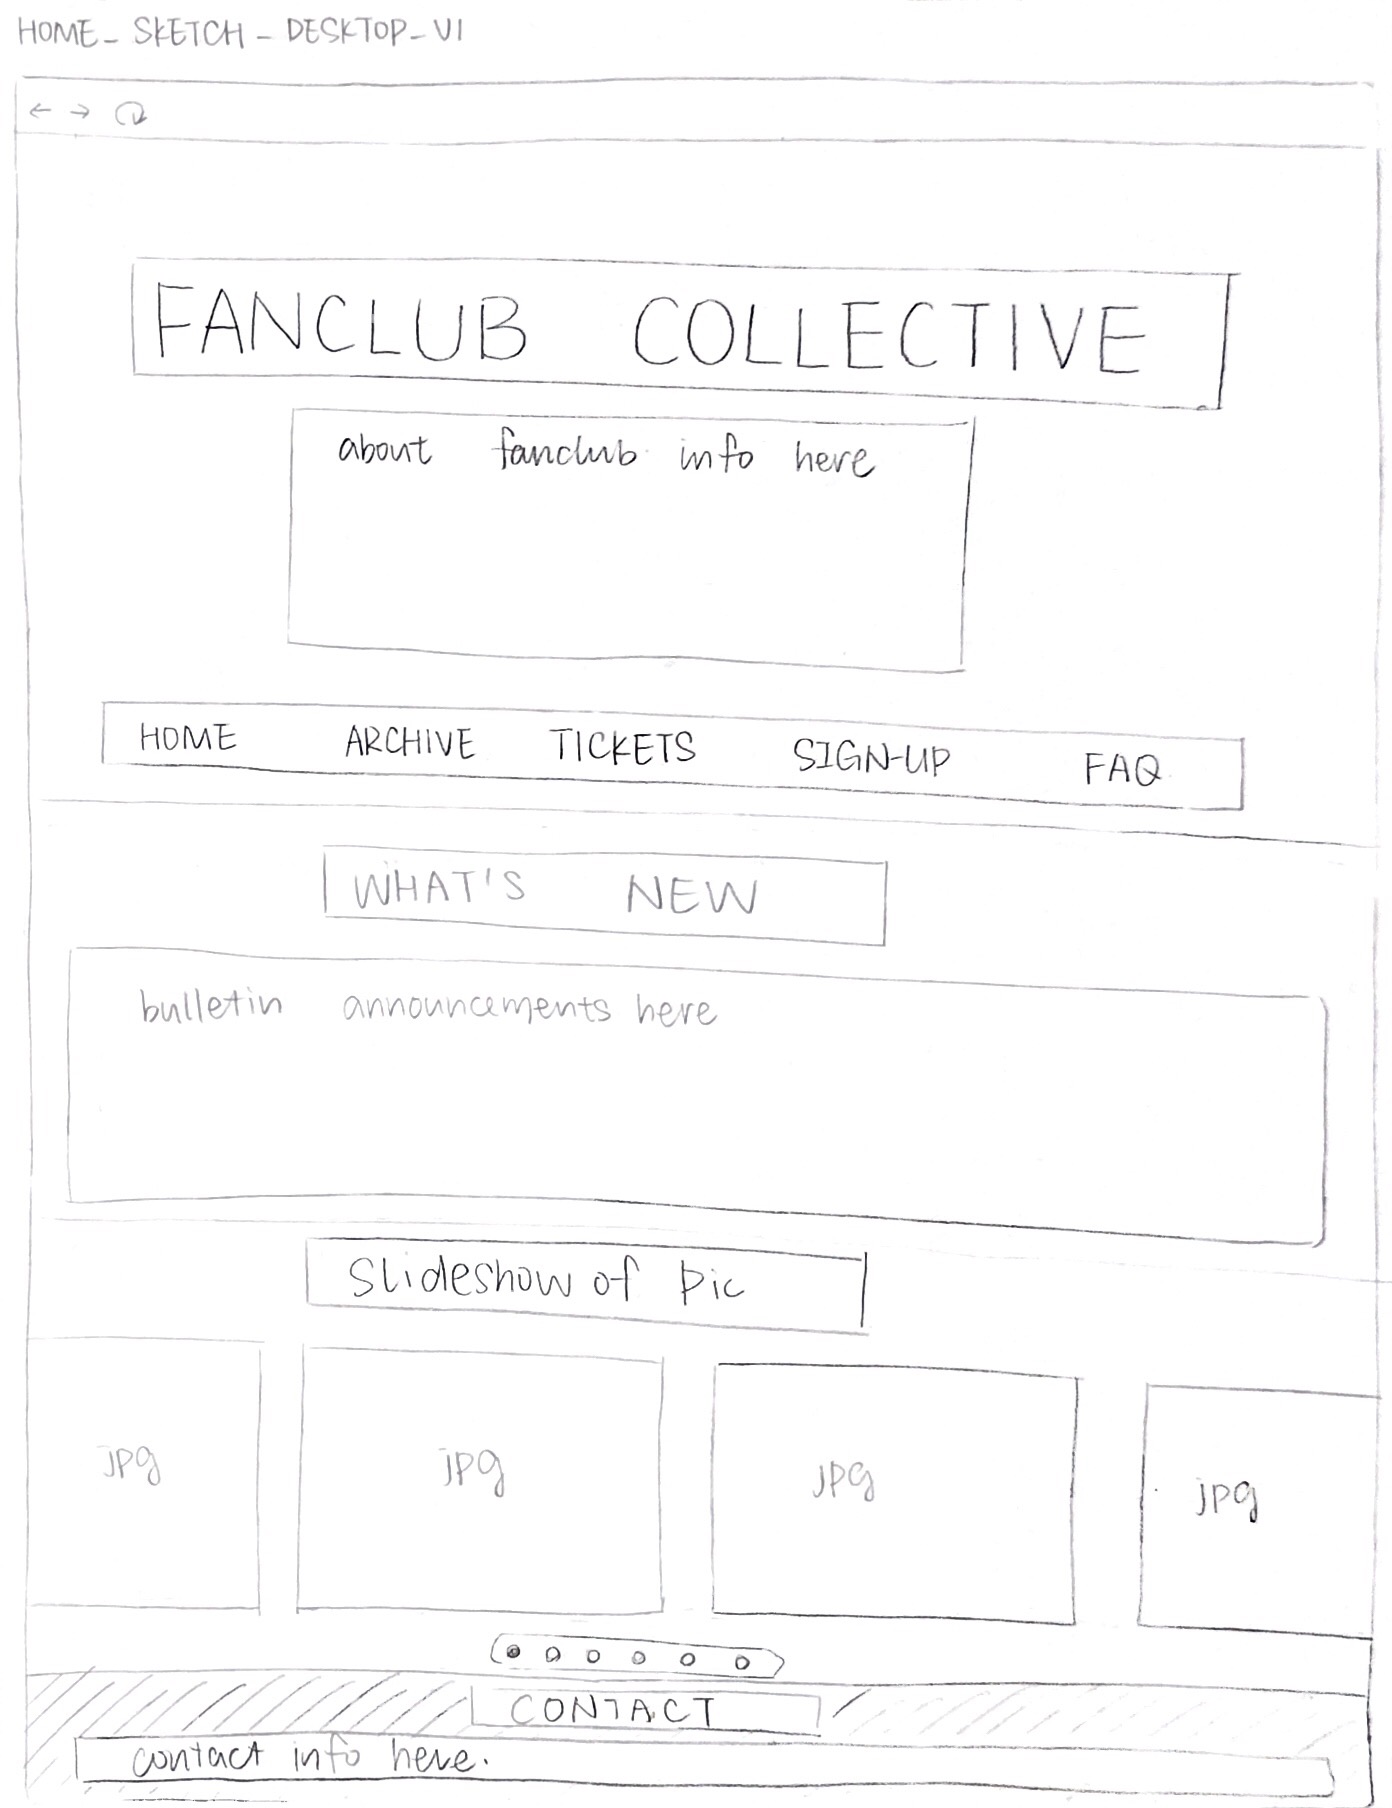 HOME_ SKETCH_ DESKTOP_V1
FANCLUB COLLECTIVE
about fanclub info here
HOME ARCHIVE TICKETS SIGN-UP FAQ
WHAT'S NEW
bulletin announcements here
Slideshow of pic
jpg jpg jpg jpg
CONTACT
contact info here.